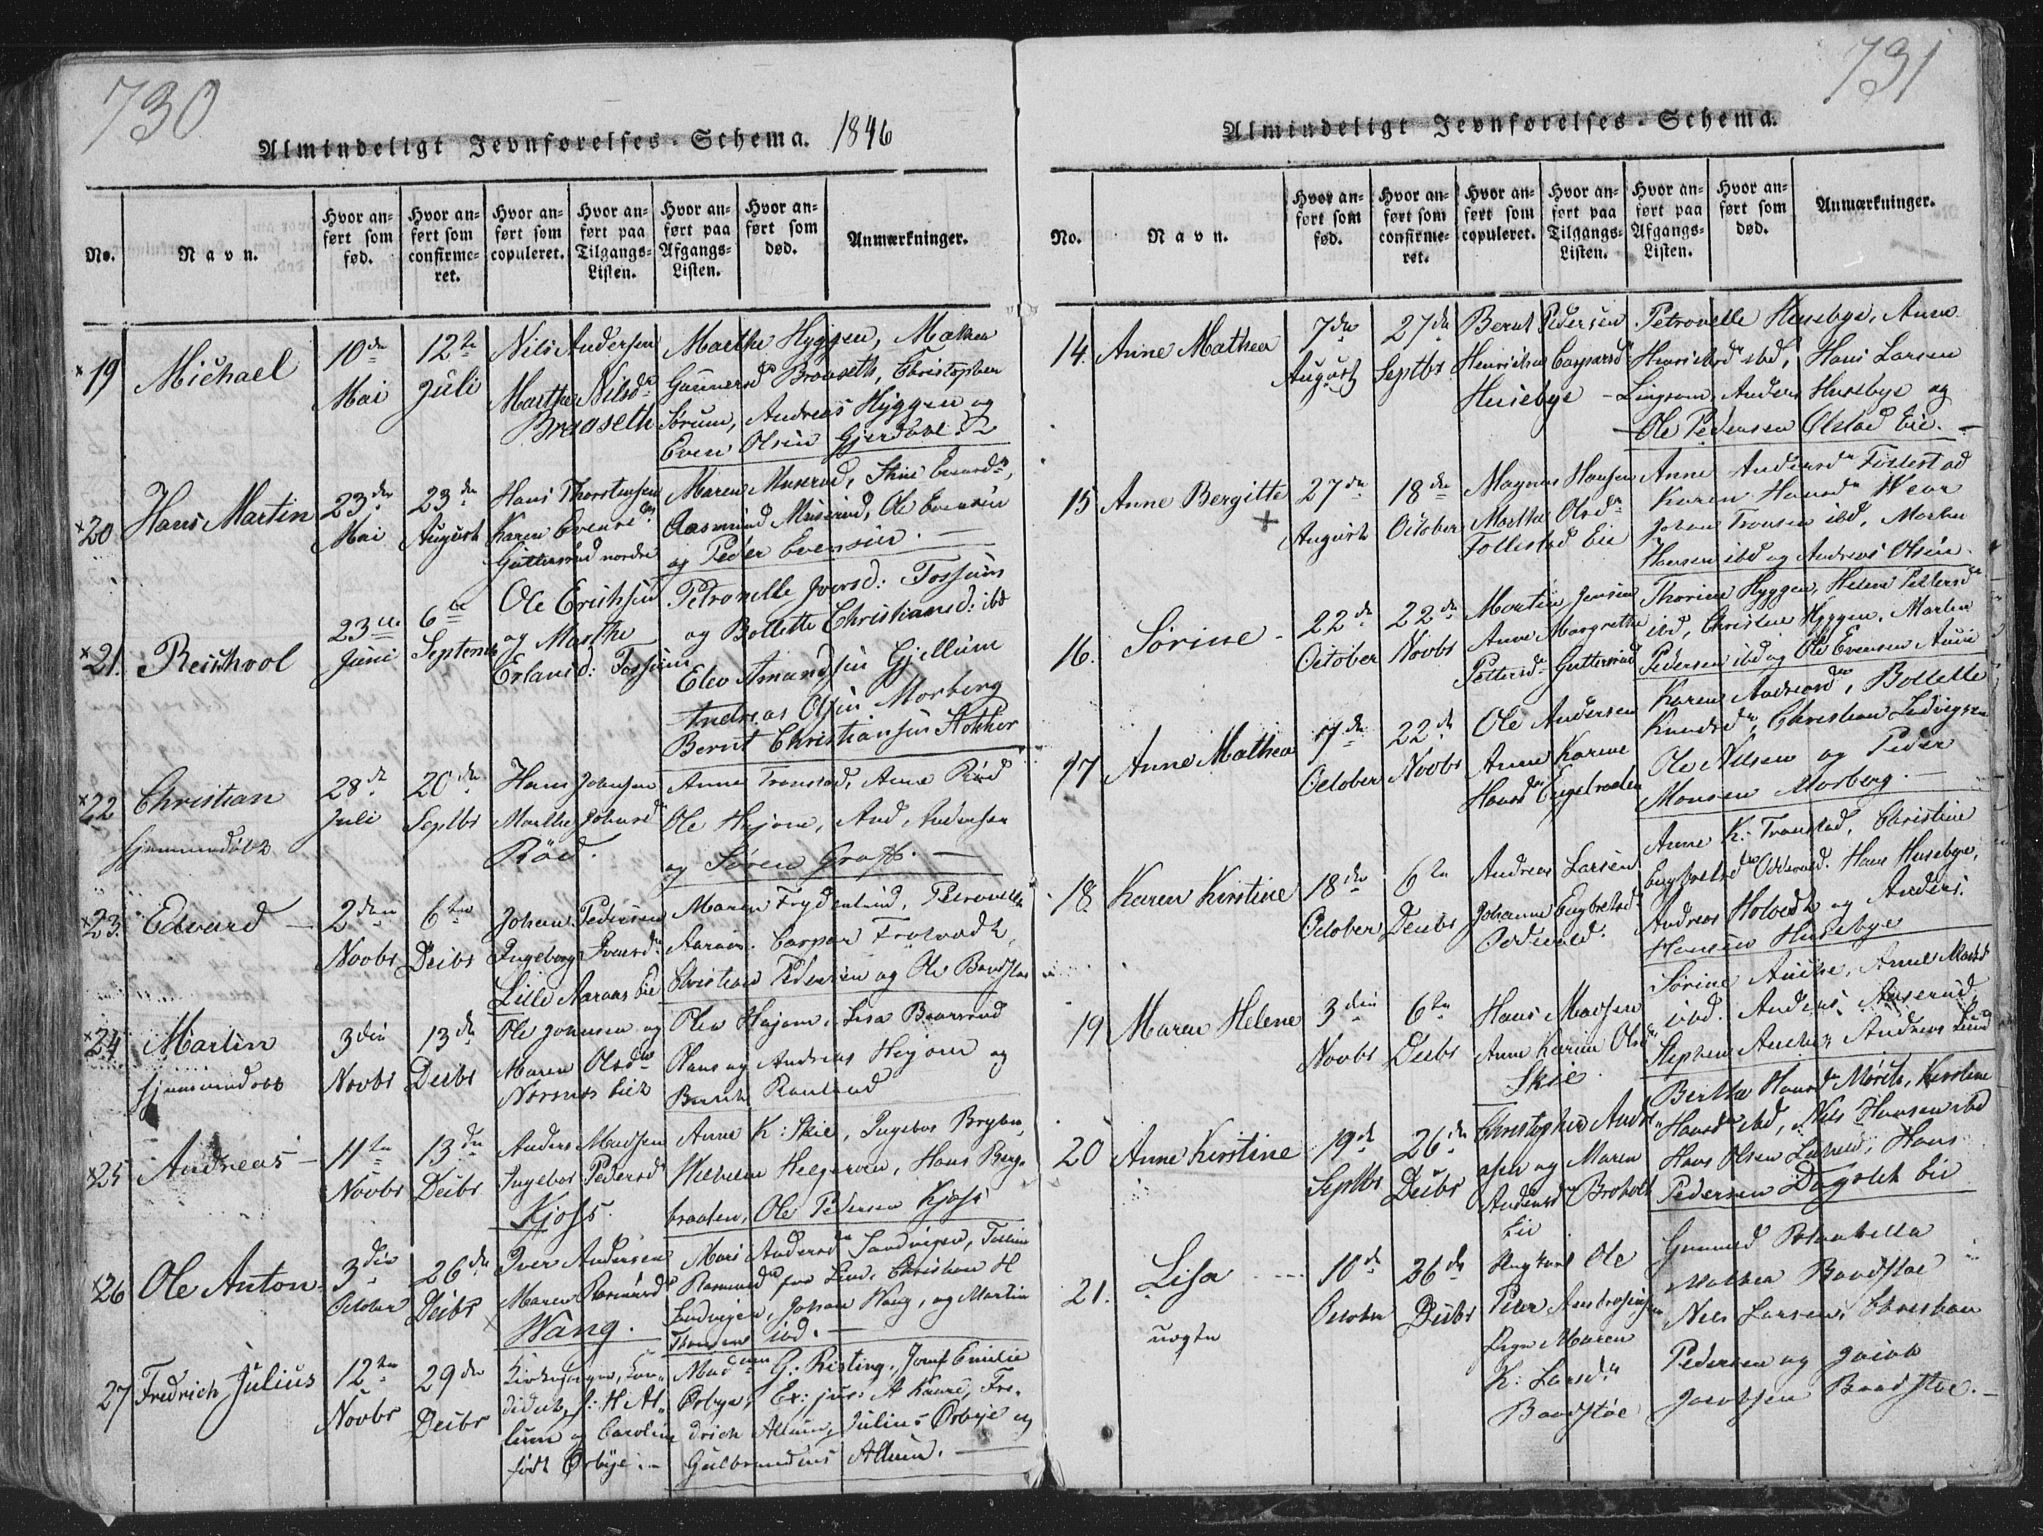 730
Almindeligt Jevnførelses-Schema. 1846
No.
Navn.
Hvor anført som fød.
Hvor anført som confirmeret.
Hvor anført som copuleret.
Hvor anført paa Tilgangs-Listen.
Hvor anført paa Afgangs-Listen.
Hvor anført som død.
Anmærkninger.
19 Michael 10de Mai 12te Juli Nils Andersen
Marthe Nilsd. Braaseth
Marthe Hyggen, Mathea
Gunnersd Braaseth, Christopher
Sørum, Andreas Hyggen og
Even Olsen Gjerdal
20 Hans Martin 23de Mai 23de August Hans Thorstensen
Karen Evensd.
Guttersrud nordre
Maren Muserud,
Aasmund Muserud, Ole Evensen
og Peder Evensen.
21. Reinhvol 23de Juni 6te Septemb Ole Erichsen
og Marthe
Erlansd: Tossum
Petronelle Iversd: Tossum
og Bollette Christiansd: ibd
Elev Amundsen Gjellum
Andreas Olsen Morberg
Bernt Christiansen Stokker
22 Christian 28de Juli 20de Septbr Hans Johnsen
hjemmedøbt
Marthe Johnsd
Röd.
Anne Transtad, Anne Röd
Ole Hajom, And. Andersen
og Søren Graff.
23. Edvard 2den Novbr 6te Decbr Johan Pedersen
Ingeborg Iversd.
Lille Aaraas Eie
Maren Frydenlund, Petronelle
Aaraas. Caspar
Christian Pedersen og Ole Baadstø
24. Martin 3die Novbr 13de Decbr Ole Johnsen og
hjemmedøbt
Maren Olsd
Næsnes Eie
Olea Hajom, Lisa Baarsrud
Andreas Hajom og
Bernt
25 Andreas 11te Novbr 13de Decbr Anders Madsen
Ingebor Pedersd
Kjøss.
Anne K: Skie, Ingebor
Wilhelm Helgesen, Hans Berg-
braaten, Ole Pedersen Kjøss
26 Ole Anton 3die October 26de Decbr Iver Andersen
Maren Rasmusd
Wang.
Mari Andersd Sandvigen,
Christian H
Sandvigen, Johan Haug, og Martin
ibd.
27 Fredrich Julius 12te Novbr 29de Decbr Kirkesanger, Kan-
didat, J: H. Al-
lum og Caroline
født Ørbye.
Mad. G: Risting, Jomf Emilie
Ørbye, Ex: jur: A Kaurd, Fre-
drich Allum, Julius Ørbye og
Gulbrandus Allum.
731
Almindeligt Jevnførelses-Schema.
No.
Navn.
Hvor anført som fød.
Hvor anført som confirmeret.
Hvor anført som copuleret.
Hvor anført paa Tilgangs-Listen.
Hvor anført paa Afgangs-Listen.
Hvor anført som død.
Anmærkninger.
14. Anne Mathea 7de August 27de Septbr Bernt Pedersen
Henrichea Caspersd
Husebye
Petronelle Husebye, Anne
Henrichsd ibd, Hans Larsen
Lingsom, Anders Husebye og
Ole Pedersen Ølstad Eie.
15 Anne Bergitte 27de August 18de October Magnus Hansen
Marthe Olsd
Follestad Eie
Anne Andersd Follestad
Karen Hansd Wear
Johan Tronsen ibd, Morten
Hansen ibd og Andreas Olsen.
16. Sörine 22de October 22de Novbr Martin Jensen
Anne Margrethe
Pettersd Guttersrud
Thorine Hyggen, Helene Pettersd
ibd, Christen Hyggen, Morten
Pedersen ibd og Ole Evensen
17 Anne Mathea 17de October 22de Novbr Ole Andersen
Anne Karine
Hansd Engebraaten
Karen Andreasd, Bollette
Knudsd, Christian Ludvigsen
Ole Nilsen og Peder
Monsen Morberg.
18. Karen Kirstine 18de October 6te Decbr Andreas Larsen
Johanne Engbretsd
Oddevald.
Anne K: Transtad, Christine
Engbretsd Oddevald. Hans Husebye,
Andreas Holvedt og Anders
Hansen Husebye
19 Maren Helene 3die Novbr 6te Decbr Hans Madsen
Anne Karine Olsd
Skie.
Sörine Auche, Anne Madsd
ibd. Anders
Stephen Auche, Andreas Lund
20 Anne Kirstine 19de Septbr 26de Decbr Christopher Andr-
esen og Maren
Andersd Broholt
Eie
Berthe Hansd Morits, Kirstine
Hansd ibd, Nils Hansen ibd
Hans Olsen, Hans
Pedersen Dagslet Eie
21. Lisa 10de October 26de Decbr Ungkarl Ole
uægte
Peter Ambrosiussen
Pige Maren
K: Larsd
Baadstøe
Gunnild
Mathea Baadstøe
Nils Larsen, Christian
Pedersen og Jacob
Jacobsen Baadstøe.